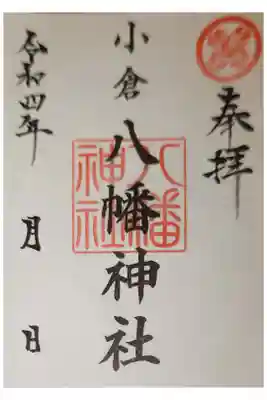 奉拝
小倉
八幡神社
八幡
神社
令和四年
月
日